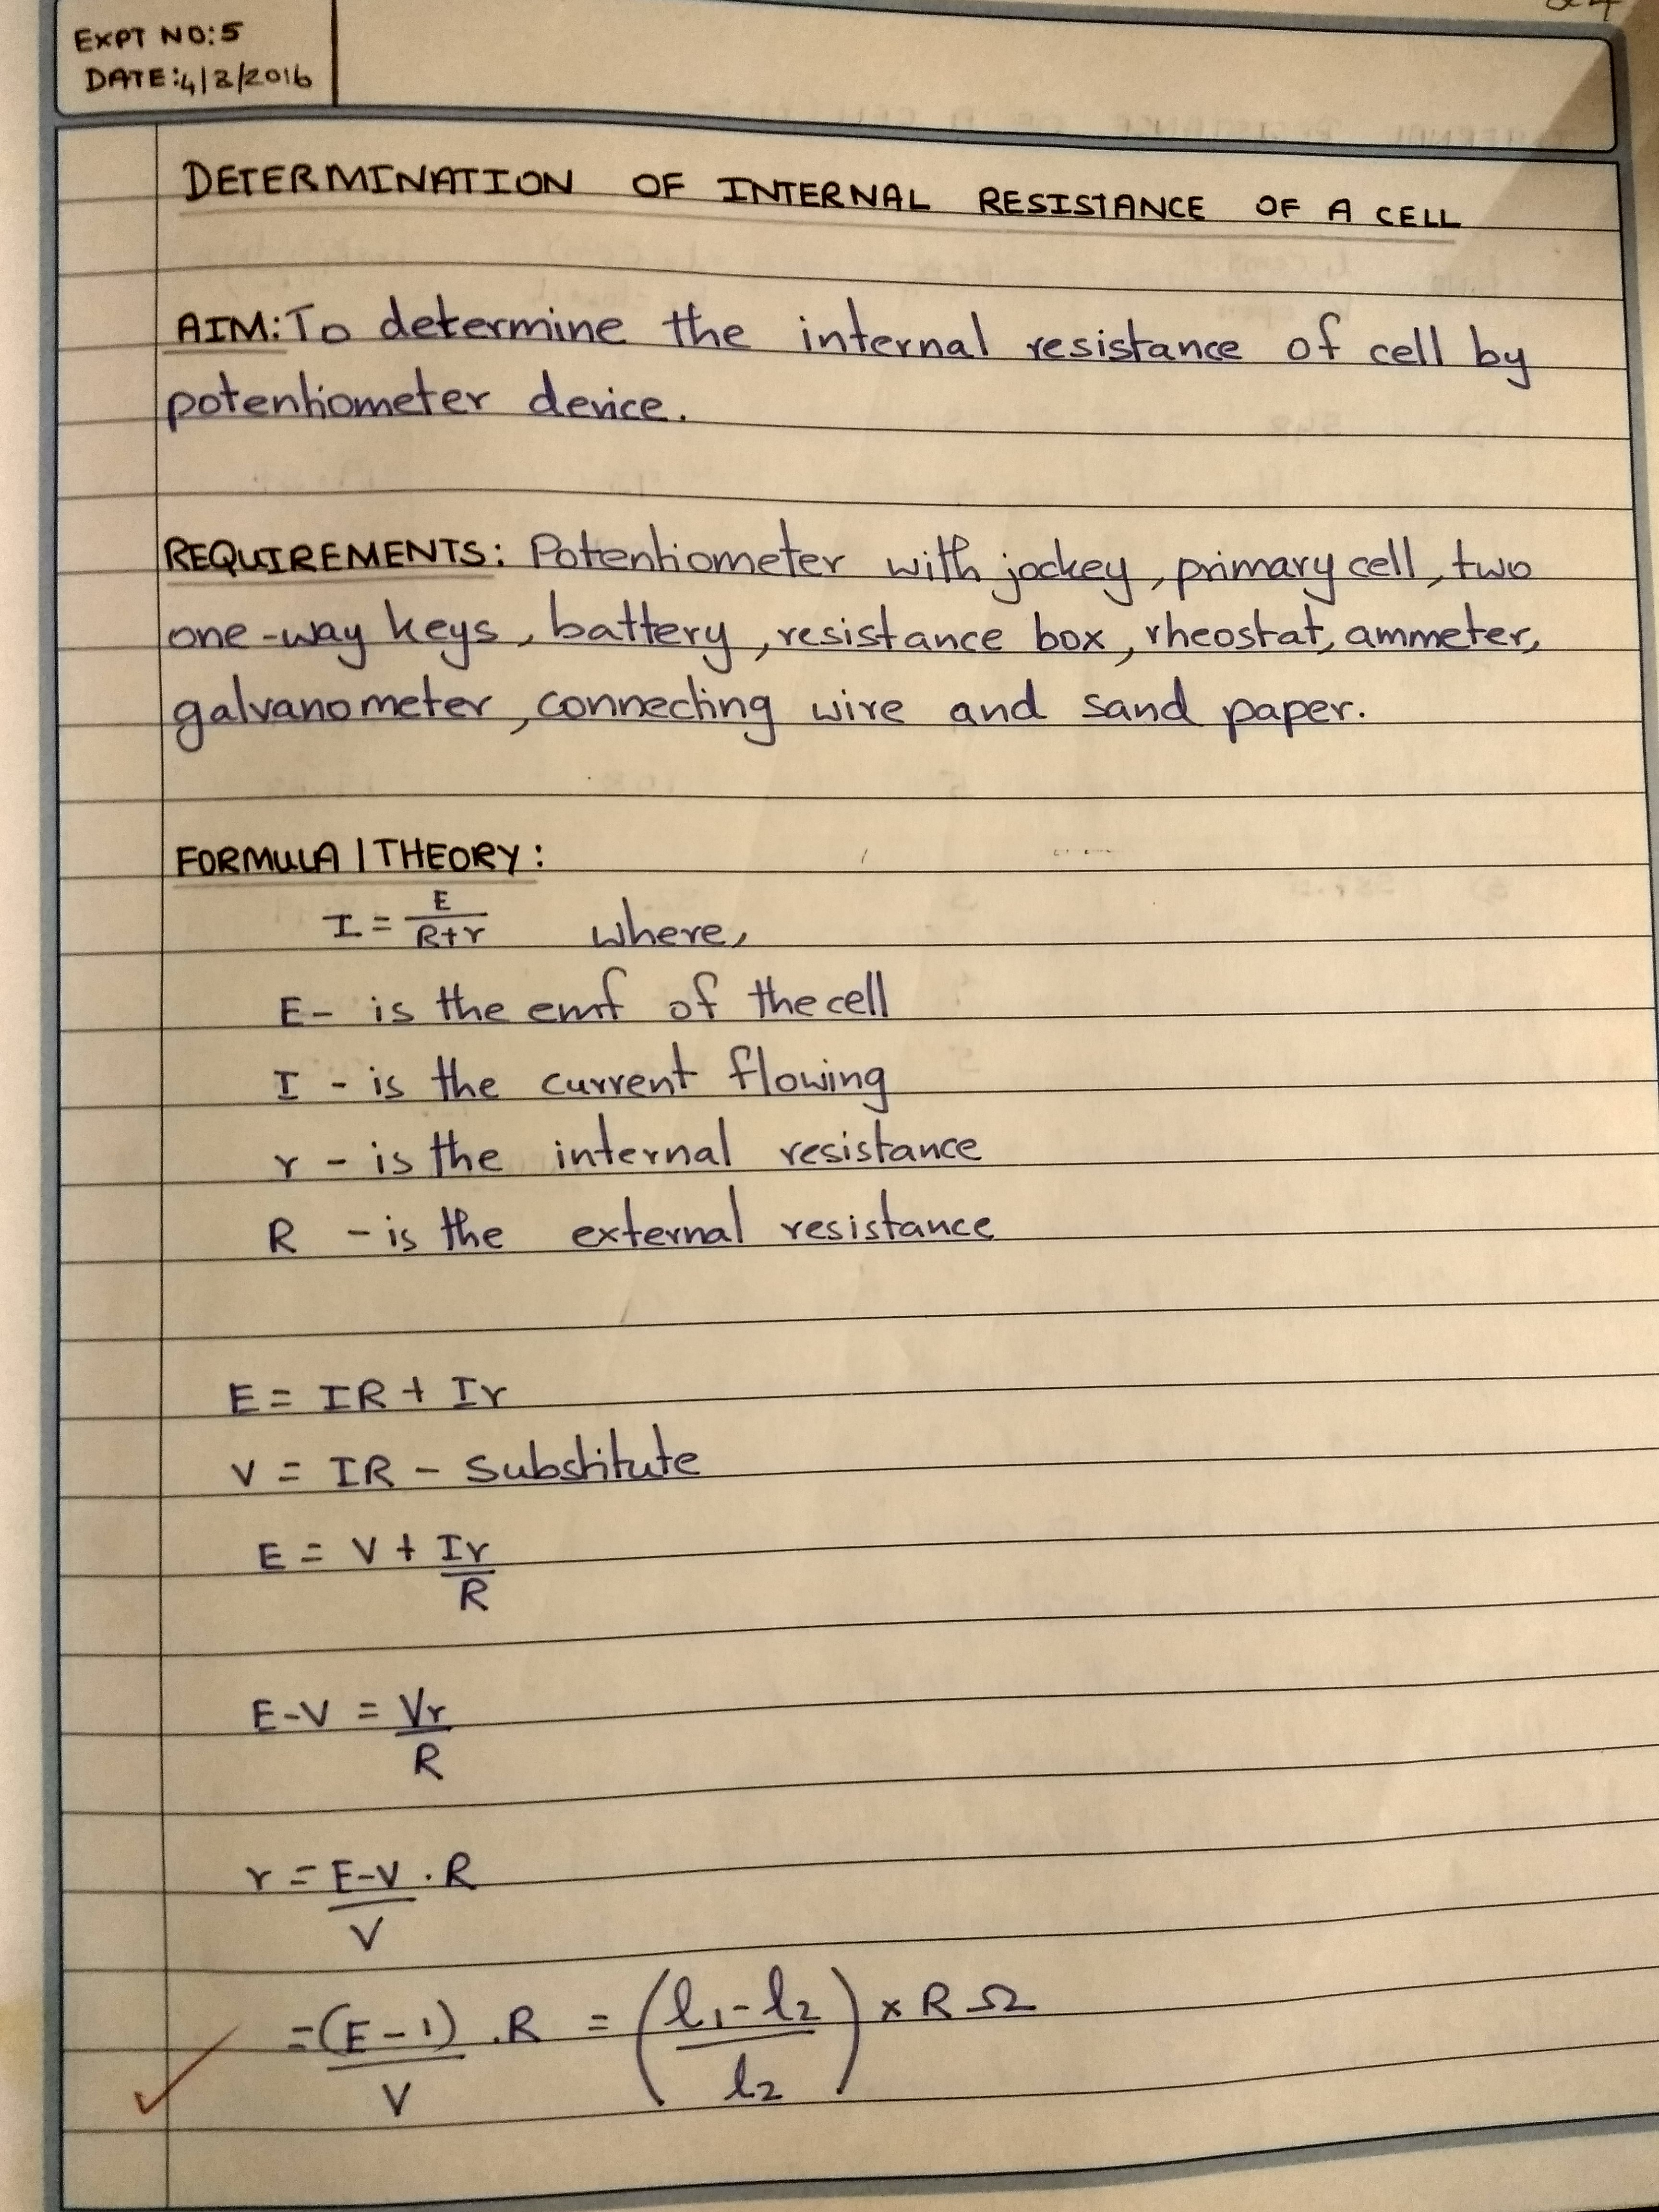 EXPT NO:5
DATE:4/8/2016
DETERMINATION OF INTERNAL RESISTANCE OF A CELL
AIM:To determine the internal resistance of cell by
potentiometer device.
REQUIREMENTS: Potentiometer with jockey, primary cell, two
one-way keys, battery, resistance box, rheostat, ammeter,
galvanometer, connecting wire and sand paper.
FORMULA | THEORY:
I = E/R+r where,
E- is the emf of the cell
I - is the current flowing
r - is the internal resistance
R - is the external resistance
E = IR + Ir
V = IR - Substitute
E = V + Ir/R
E-V = Vr/R
r = E-V/V . R
=(E-1)/V .R = (l₁-l₂/l₂) x R Ω